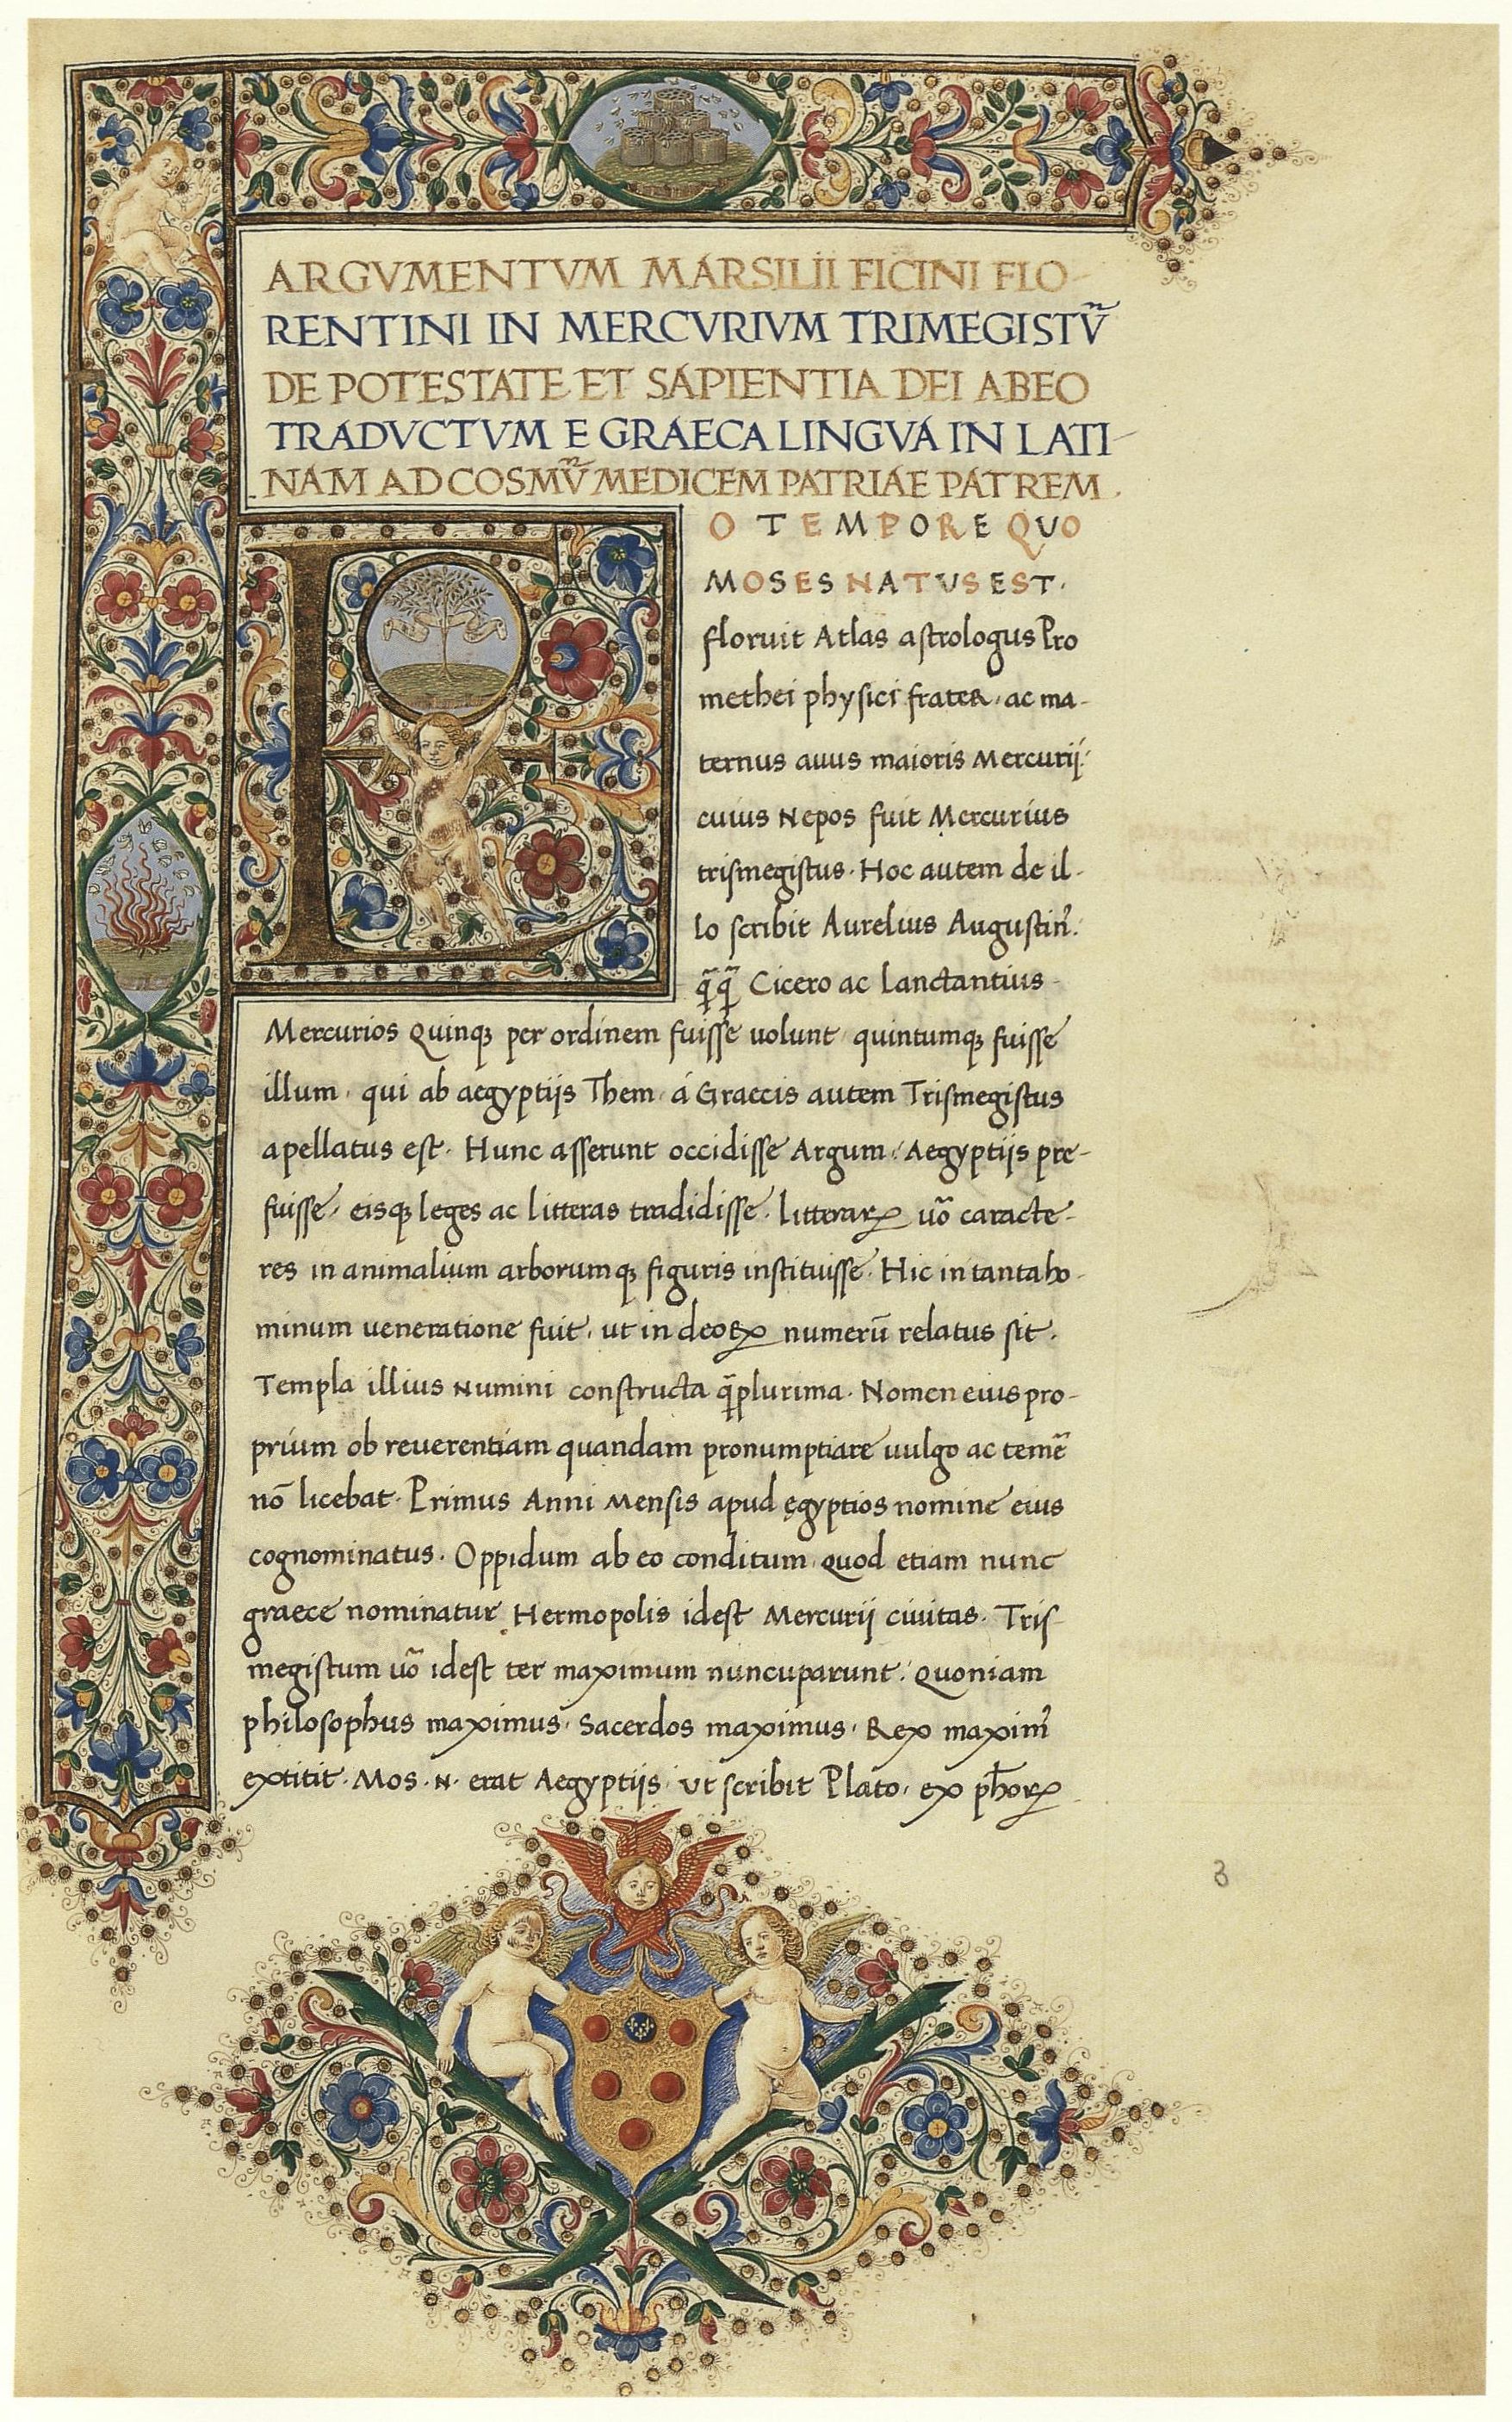 ARGVMENTVM MARSILII FICINI FLO-
RENTINI IN MERCVRIVM TRIMEGISTṼ
DE POTESTATE ET SAPIENTIA DEI AB EO
TRADVCTVM E GRAECA LINGVA IN LATI-
NAM AD COSMṼ MEDICEM PATRIAE PATREM.
EO TEMPORE QUO
MOSES NATUS EST.
floruit Atlas aſtrologus Pro
methei phyſici frater, ac ma-
ternus auus maioris Mercurii:
cuius Nepos fuit Mercurius
triſmegiſtus. Hoc autem de il-
lo ſcribit Aurelius Auguſtin᾽.
q̃q̃ Cicero ac Lanctantius
Mercurios quinqꝫ per ordinem fuiſſe uolunt quintumqꝫ fuiſſe
illum, qui ab aegyptijs Them, á Graecis autem Triſmegiſtus
apellatus eſt. Hunc aſſerunt occidiſſe Argum: Aegyptijs pre-
fuiſſe, eisqꝫ leges ac litteras tradidiſſe. litterarꝝ uõ caracte-
res in animalium arborumqꝫ figuris inſtituiſſe. Hic in tanta ho-
minum ueneratione fuit, ut in deoꝝ numerũ relatus ſit.
Templa illius Numini conſtructa q̃plurima. Nomen eius pro-
prium ob reuerentiam quandam pronumptiare uulgo ac temẽ
nõ licebat. Primus Anni Menſis apud ęgyptios nomine eius
cognominatus. Oppidum ab eo conditum quod etiam nunc
graece nominatur Hermopolis idest Mercurij ciuitas. Triſ-
megiſtum uõ idest ter maximum nuncuparunt: quoniam
philoſophus maximus, Sacerdos maximus, Rex maxim᾽
extitit. Mos .N. erat Aegyptijs, ut ſcribit Plato, ex ph̄orꝝ
3